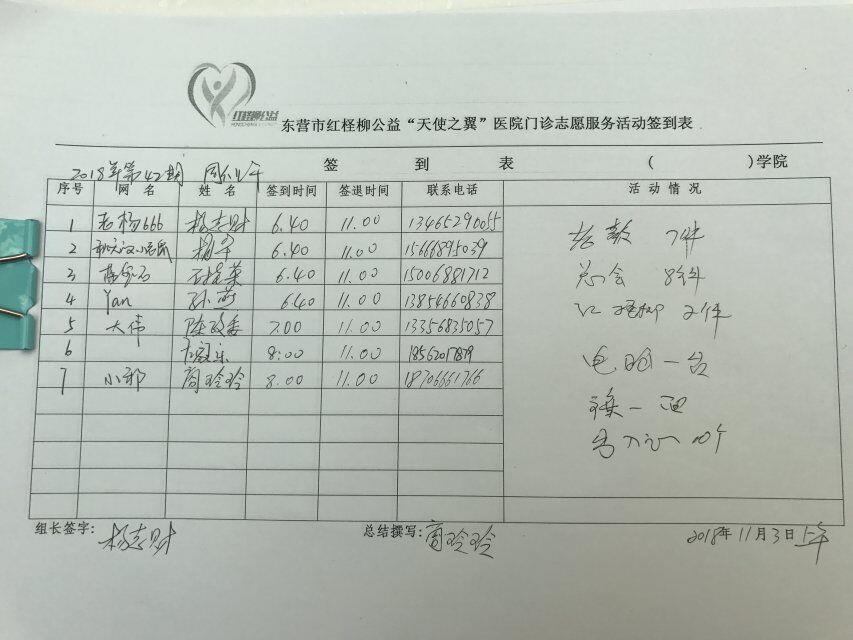 红柽柳公益
东营市红柽柳公益“天使之翼”医院门诊志愿服务活动签到表
2018年第42期 周六上午 签 到 表 ( )学院
序号 网 名 姓 名 签到时间 签退时间 联系电话 活 动 情 况
1 老杨666 杨志财 6.40 11.00 13465290055
2 6.40 11.00 15666895039
3 6.40 11.00 15006881712
4 Yan 孙 6.40 11.00 13854660838
5 大伟 陈 7.00 11.00 13356835057
6 8:00 11.00 18562017879
7 小郭 商玲玲 8.00 11.00 18706661766
7件
总会 8件
红柽柳 2件
电 一台
一面
10个
组长签字: 杨志财 总结撰写: 商玲玲 2018年11月3日上午